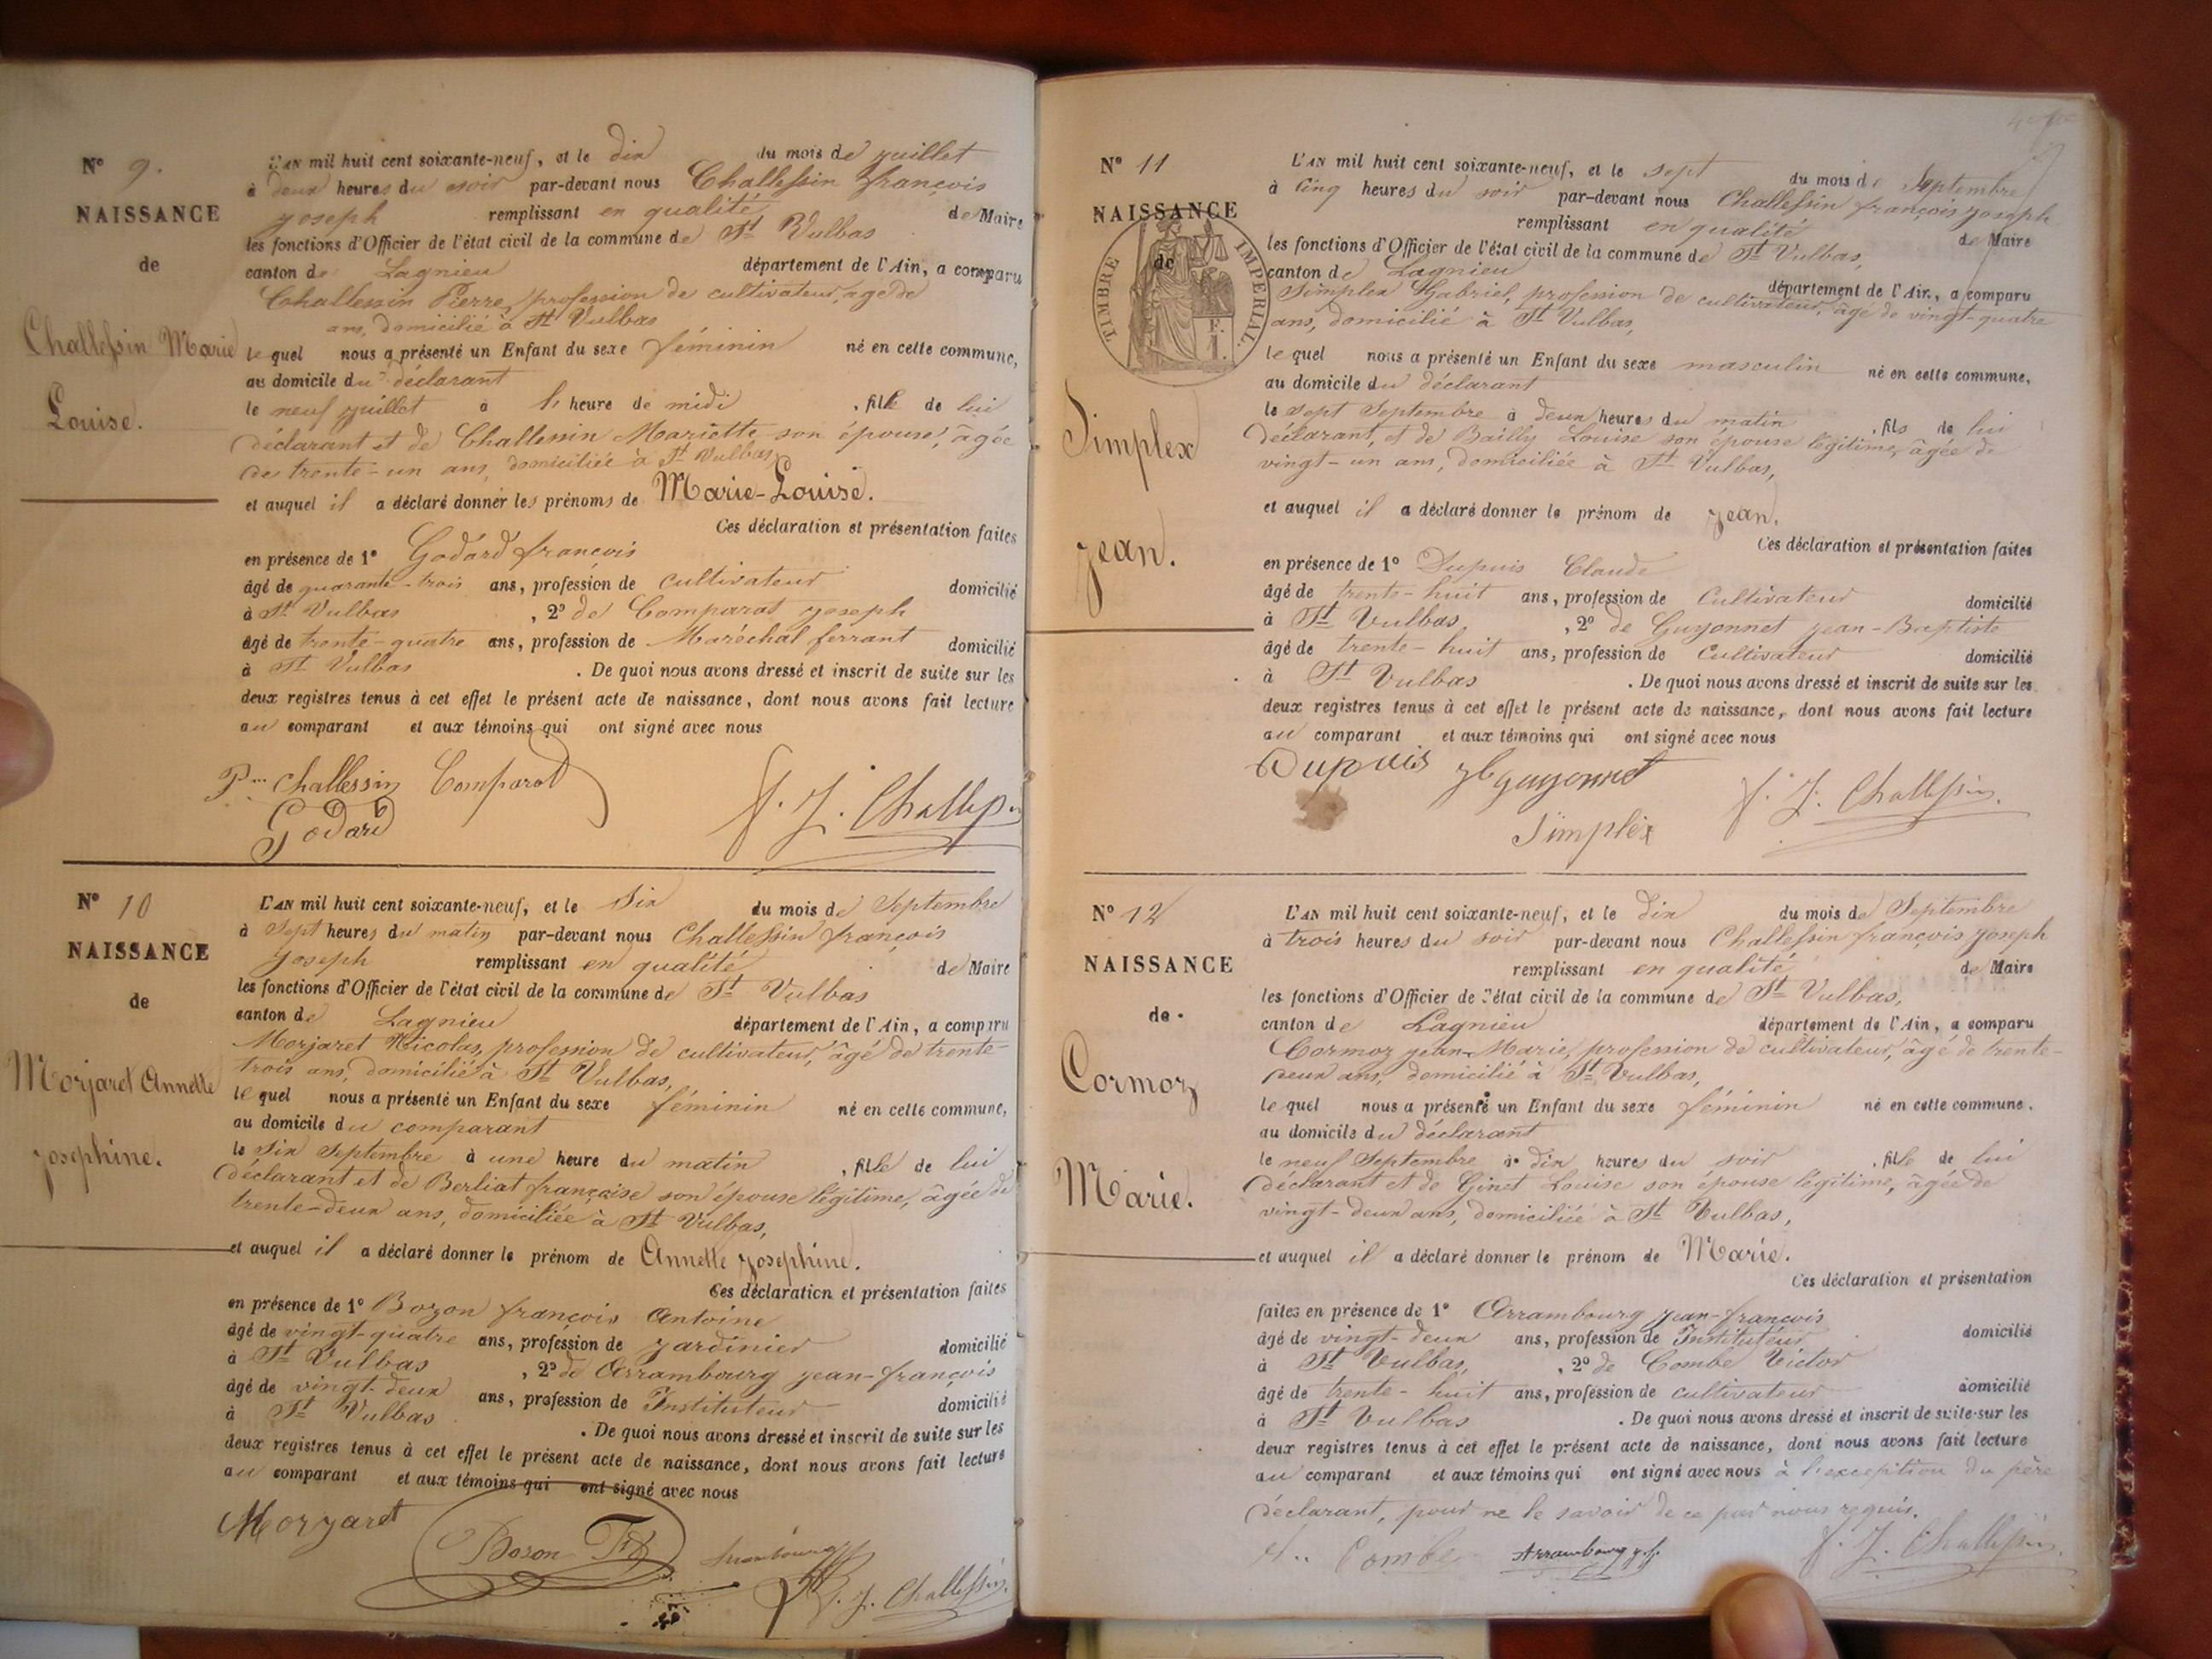 N° 9.
NAISSANCE
de
Challessin Marie
Louise.
L'AN mil huit cent soixante-neuf, et le dix du mois de juillet
à deux heures du soir par-devant nous Challessin françois
joseph remplissant en qualité de Maire
les fonctions d'Officier de l'état civil de la commune de St Vulbas
canton de Lagnieu département de l'Ain, a comparu
Challessin Pierre, profession de cultivateur, âgé de
ans, domicilié à St Vulbas
le quel nous a présenté un Enfant du sexe féminin né en cette commune,
au domicile du déclarant
le neuf juillet à l' heure de midi , fille de lui
déclarant et de Challessin Mariette son épouse, âgée
de trente-un ans, domiciliée à St Vulbas,
et auquel il a déclaré donner les prénoms de Marie-Louise.
Ces déclaration et présentation faites
en présence de 1° Godard françois
âgé de quarante-trois ans, profession de cultivateur domicilié
à St Vulbas , 2° de Comparat joseph
âgé de trente-quatre ans, profession de Maréchal ferrant domicilié
à St Vulbas . De quoi nous avons dressé et inscrit de suite sur les
deux registres tenus à cet effet le présent acte de naissance, dont nous avons fait lecture
au comparant et aux témoins qui ont signé avec nous
Challessin Comparat
Godard f. J. Challessin
N° 10
NAISSANCE
de
Morjaret Annette
josephine.
L'AN mil huit cent soixante-neuf, et le Six du mois de Septembre
à Sept heures du matin par-devant nous Challessin françois
joseph remplissant en qualité de Maire
les fonctions d'Officier de l'état civil de la commune de St Vulbas
canton de Lagnieu département de l'Ain, a comparu
Morjaret Nicolas, profession de cultivateur, âgé de trente-
trois ans, domicilié à St Vulbas,
le quel nous a présenté un Enfant du sexe féminin né en cette commune,
au domicile du comparant
le Six Septembre à une heure du matin , fille de lui
déclarant et de Berliat françoise son épouse légitime, âgée de
trente-deux ans, domiciliée à St Vulbas,
et auquel il a déclaré donner le prénom de Annette josephine.
Ces déclaration et présentation faites
en présence de 1° Bozon françois Antoine
âgé de vingt-quatre ans, profession de jardinier domicilié
à St Vulbas , 2° de Arrambourg jean-françois
âgé de vingt-deux ans, profession de Instituteur domicilié
à St Vulbas . De quoi nous avons dressé et inscrit de suite sur les
deux registres tenus à cet effet le présent acte de naissance, dont nous avons fait lecture
au comparant et aux témoins qui ont signé avec nous
Morjaret Boson Arrambourg f. J. Challessin
N° 11
NAISSANCE
de
TIMBRE IMPERIAL
E. I.
Simplex
jean.
L'AN mil huit cent soixante-neuf, et le sept du mois de Septembre
à Cinq heures du soir par-devant nous Challessin françois joseph
remplissant en qualité de Maire
les fonctions d'Officier de l'état civil de la commune de St Vulbas,
canton de Lagnieu département de l'Ain, a comparu
Simplex Gabriel, profession de cultivateur, âgé de vingt-quatre
ans, domicilié à St Vulbas,
le quel nous a présenté un Enfant du sexe masculin né en cette commune,
au domicile du déclarant
le sept Septembre à deux heures du matin , fils de lui
déclarant, et de Bailly Louise son épouse légitime, âgée de
vingt-un ans, domiciliée à St Vulbas,
et auquel il a déclaré donner le prénom de jean.
Ces déclaration et présentation faites
en présence de 1° Dupuis Claude
âgé de trente-huit ans, profession de Cultivateur domicilié
à St Vulbas, , 2° de Guyonnet jean-Baptiste
âgé de trente-huit ans, profession de Cultivateur domicilié
à St Vulbas . De quoi nous avons dressé et inscrit de suite sur les
deux registres tenus à cet effet le présent acte de naissance, dont nous avons fait lecture
au comparant et aux témoins qui ont signé avec nous
Dupuis jb guyonnet f. J. Challessin
Simplex
N° 12
NAISSANCE
de
Cormoz
Marie.
L'AN mil huit cent soixante-neuf, et le dix du mois de Septembre
à trois heures du soir par-devant nous Challessin françois joseph
remplissant en qualité de Maire
les fonctions d'Officier de l'état civil de la commune de St Vulbas,
canton de Lagnieu département de l'Ain, a comparu
Cormoz jean-Marie, profession de cultivateur, âgé de trente-
deux ans, domicilié à St Vulbas,
le quel nous a présenté un Enfant du sexe féminin né en cette commune,
au domicile du déclarant
le neuf Septembre à dix heures du soir , fille de lui
déclarant et de Ginet Louise son épouse légitime, âgée de
vingt-deux ans, domiciliée à St Vulbas,
et auquel il a déclaré donner le prénom de Marie.
Ces déclaration et présentation
faites en présence de 1° Arrambourg jean-françois
âgé de vingt-deux ans, profession de Instituteur domicilié
à St Vulbas, , 2° de Combe Victor
âgé de trente-huit ans, profession de cultivateur domicilié
à St Vulbas . De quoi nous avons dressé et inscrit de suite sur les
deux registres tenus à cet effet le présent acte de naissance, dont nous avons fait lecture
au comparant et aux témoins qui ont signé avec nous à l'exception du père
déclarant, pour ne le savoir de ce par nous requis.
Combe Arrambourg j. f. f. J. Challessin